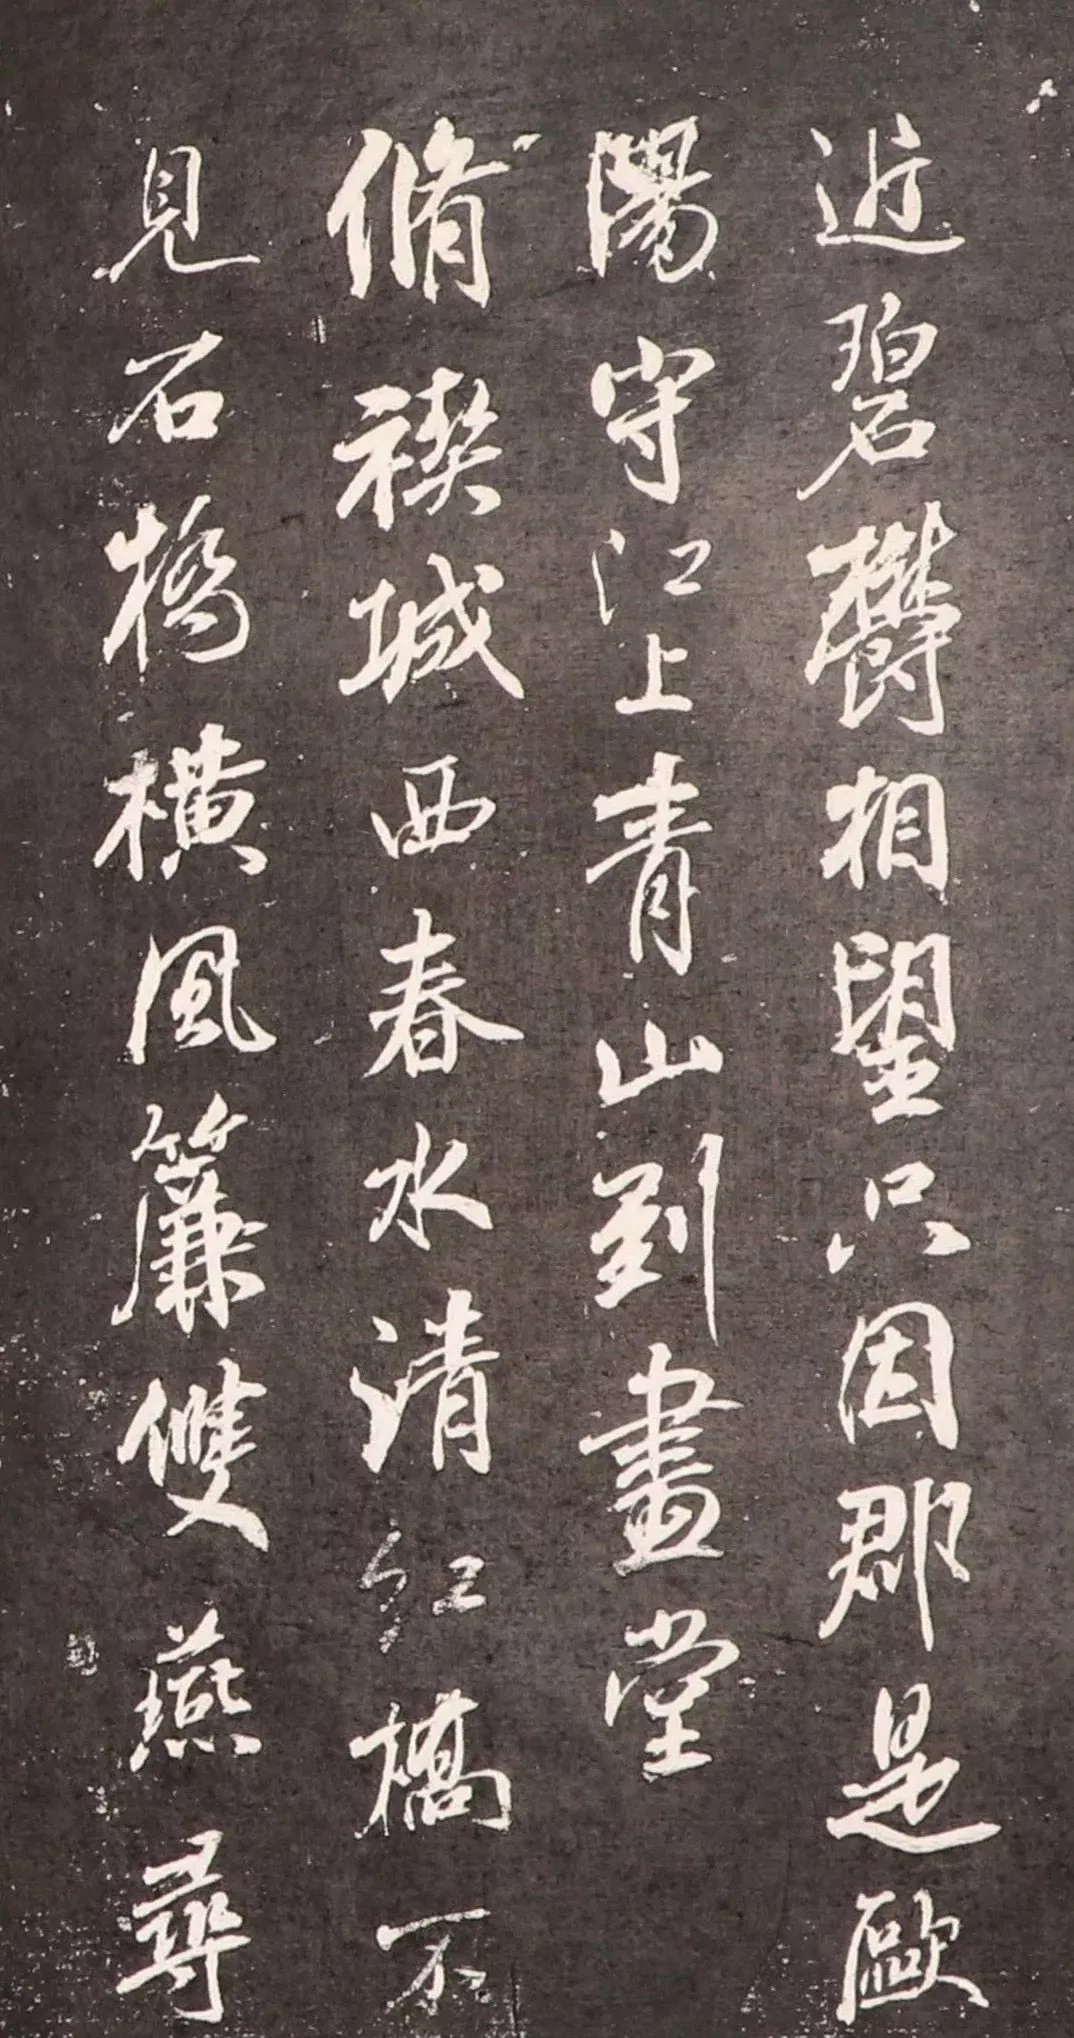 近碧欝相望只因郡是歐
陽守江上青山到畫堂
脩禊城西春水清紅橋不
見石橋橫風簾雙燕尋